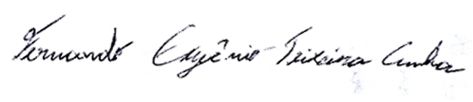 Fernando Eugênio Teixeira Cunha